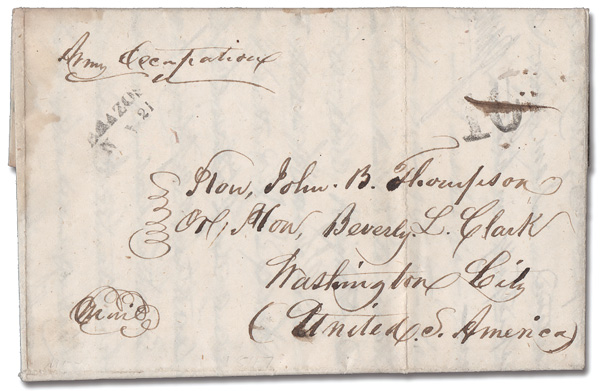 Army Occupation
BRAZOS
N 21
10
Hon, John. B. Thompson
Or, Hon, Beverly. L. Clark
Washington City
(United. S. America)
Mail